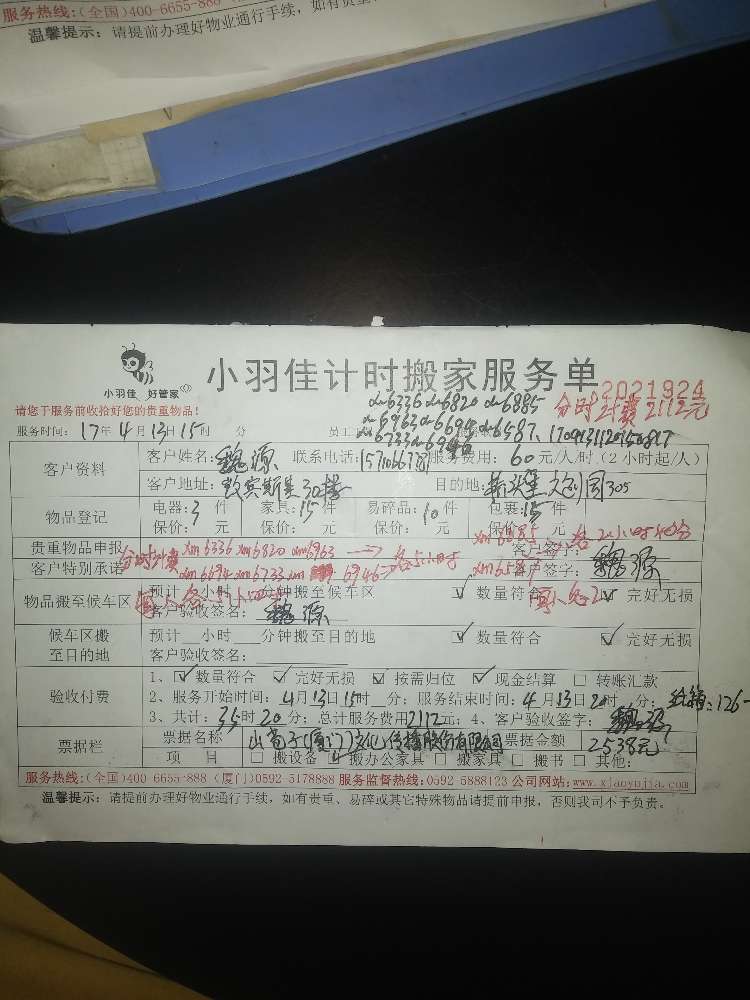 服务热线:(全国)400-6655-888
温馨提示: 请提前办理好物业通行手续, 如有贵重
小羽佳 好管家
小羽佳计时搬家服务单
2021924
请您于服务前收拾好您的贵重物品!
分时计费2112元
xm6336 xm6820 xm6885
服务时间: 17年4月13日15时 分 员工
xm6963 xm6694 xm6587
xm6733 xm6946
客户资料 客户姓名: 魏源 联系电话: 服务费用: 60元/人/时(2小时起/人)
客户地址: 30楼 目的地: 文创园305
物品登记 电器: 3件 家具: 15件 易碎品: 10件 包裹: 件
保价: 元 保价: 元 保价: 元 保价: 元
贵重物品申报 分时计费 xm6336 xm6820 xm6963 xm6885 客户签字:
客户特别承诺 xm6694 xm6733 xm6946 各5小时 客户签字: 魏源
物品搬至候车区 预计 小时 分钟搬至候车区 数量符合 完好无损
客户验收签名: 魏源
候车区搬至目的地 预计 小时 分钟搬至目的地 数量符合 完好无损
客户验收签名:
验收付费 1、 数量符合 完好无损 按需归位 现金结算 转账汇款
2、服务开始时间: 4月13日15时 分; 服务结束时间: 4月13日20时 分; 纸箱: 126-
3、共计: 35时20分; 总计服务费用2112元; 4、客户验收签字: 魏源
票据栏 票据名称 (厦门)文化传播股份有限公司 票据金额 2538元
项 目 搬设备 搬办公家具 搬家具 搬书 其他:
服务热线:(全国)400-6655-888 (厦门)0592-5178888 服务监督热线:0592-5888123 公司网站:www.xiaoyujia.com
温馨提示: 请提前办理好物业通行手续, 如有贵重、易碎或其它特殊物品请提前申报, 否则我司不予负责。